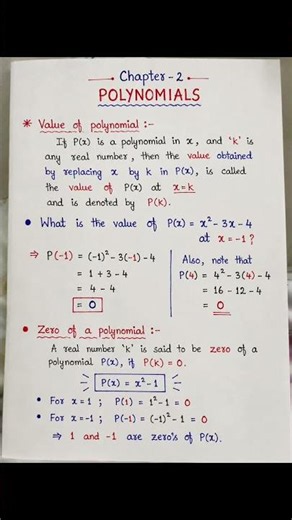 Chapter - 2
POLYNOMIALS
* Value of polynomial :-
If P(x) is a polynomial in x, and 'k' is
any real number, then the value obtained
by replacing x by k in P(x), is called
the value of P(x) at x=k
and is denoted by P(k).
• What is the value of P(x) = x² - 3x - 4
at x = -1 ?
⇒ P(-1) = (-1)² - 3(-1) - 4
= 1 + 3 - 4
= 4 - 4
= 0
Also, note that
P(4) = 4² - 3(4) - 4
= 16 - 12 - 4
= 0
• Zero of a polynomial :-
A real number 'k' is said to be zero of a
polynomial P(x), if P(k) = 0.
P(x) = x² - 1
• For x = 1 ; P(1) = 1² - 1 = 0
• For x = -1 ; P(-1) = (-1)² - 1 = 0
⇒ 1 and -1 are zero's of P(x).